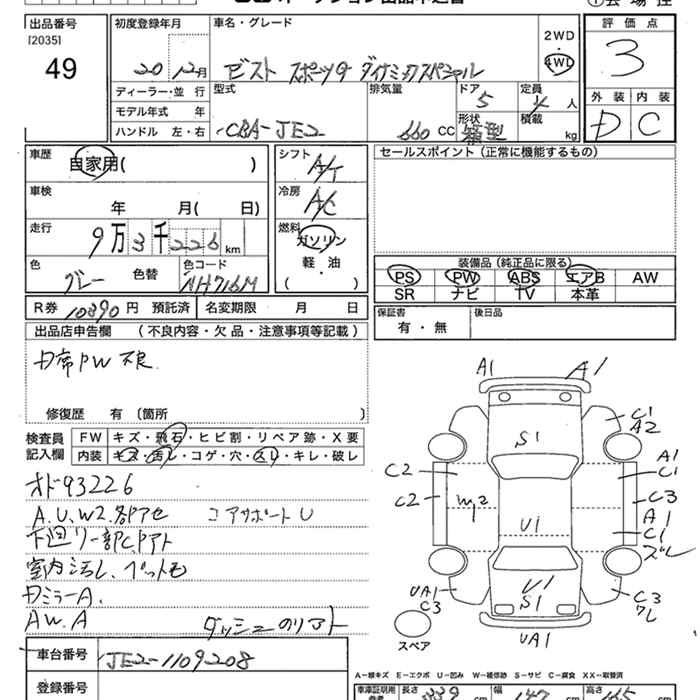 出品番号
[2035]
49
初度登録年月
20 12月
車名・グレード
ゼスト スポーツG ダイナミックスペシャル
2WD
・
4WD
評価点
3
外装 内装
D C
ディーラー・並行
モデル年式 年
ハンドル 左・右
型式
CBA-JE2
排気量
660 CC
ドア
5
形状
箱型
定員
4 人
積載
kg
車歴
自家用( )
車検
年 月( 日)
走行
9万3千226 km
色
グレー
色替
色コード
NH716M
シフト
A/T
冷房
A/C
燃料
ガソリン
軽・油
( )
セールスポイント(正常に機能するもの)
装備品(純正品に限る)
PS PW ABS エアB AW
SR ナビ TV 本革
R券 10390円 預託済 名変期限 月 日
保証書
有・無
後日品
出品店申告欄 (不良内容・欠品・注意事項等記載)
助席PW 不良
修復歴 有 〔箇所 〕
検査員
記入欄
FW キズ・飛石・ヒビ割・リペア跡・X要
内装 キズ・汚レ・コゲ・穴・スレ・キレ・破レ
オド93226
A.U.W2.各部アセ コアサポートU
下廻リ一部C.Pアト
室内汚レ、ペット毛
AW.A ダッシュのリアト
A1 A1
C1
A2
S1
A1
C1
C2
C2
W2
C3
A1
C1
ズレ
U1
U1
S1
UA1
C3
C3
ワレ
UA1
スペア
車台番号
JE2-1109208
登録番号
A−線キズ E−エクボ U−凹み W−補修跡 S−サビ C−腐食 XX−取替済
車庫証明用
参考
長さ
339 cm
幅
147 cm
高さ
165 cm